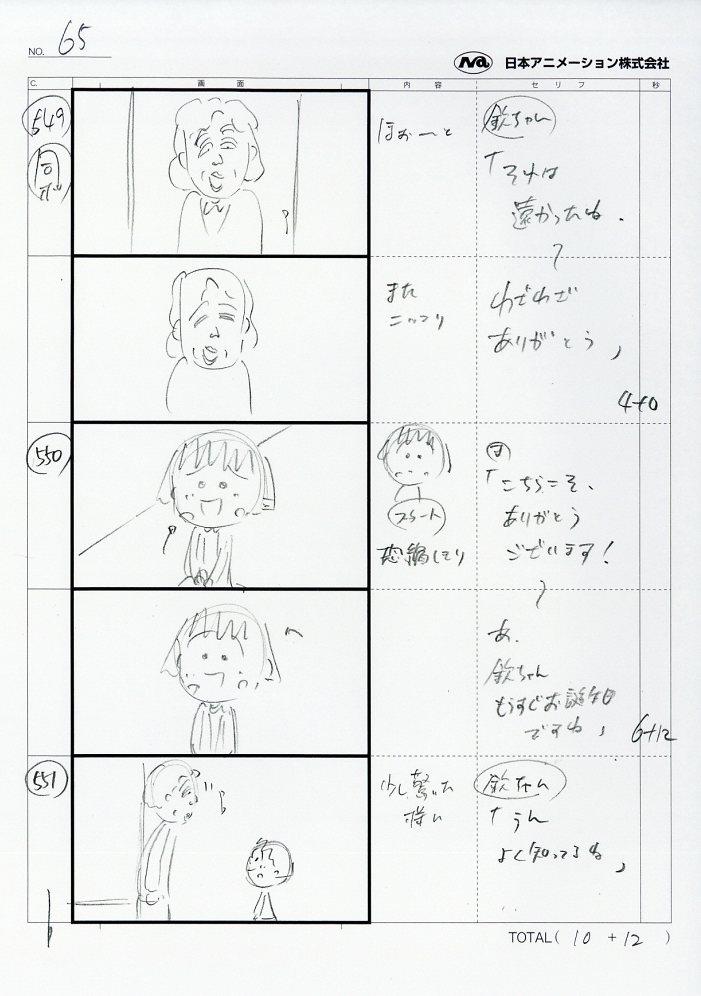 NO. 65
日本アニメーション株式会社
C. 画面 内容 セリフ 秒
549
同ポ
ほぉーっと
欽ちゃん
「それは
遠かったね、
わざわざ
ありがとう」
また
ニッコリ
4+0
550
スタート
恐縮しきり
ま
「こちらこそ、
ありがとう
ございます!
あ、
欽ちゃん
もうすぐお誕生日
ですね」
6+12
551
少し驚いた
様に
欽ちゃん
「うん
よく知ってるね」
TOTAL( 10 + 12 )